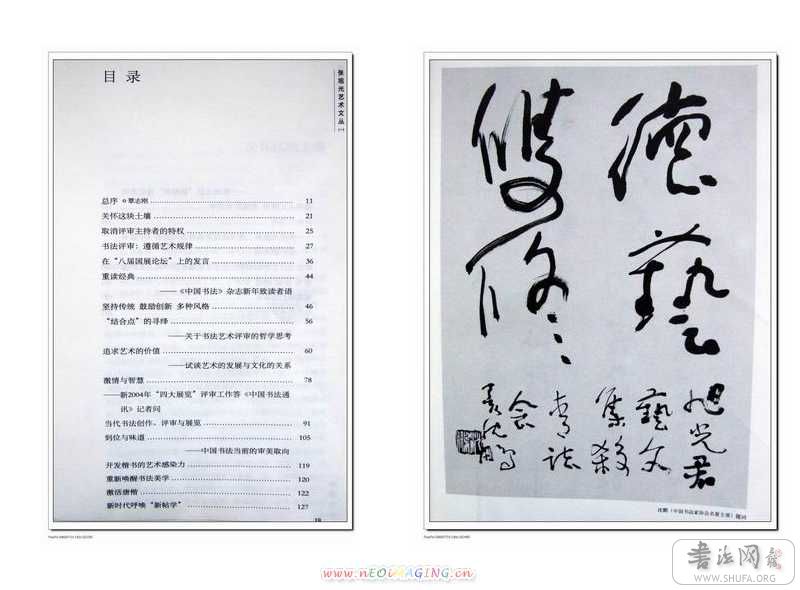 目录
张旭光艺术文丛
总序 ○ 覃志刚 11
关怀这块土壤 21
取消评审主持者的特权 25
书法评审：遵循艺术规律 27
在“八届国展论坛”上的发言 36
重读经典 44
——《中国书法》杂志新年致读者语
坚持传统 鼓励创新 多种风格 46
“结合点”的寻绎 56
——关于书法艺术评审的哲学思考
追求艺术的价值 60
——试谈艺术的发展与文化的关系
激情与智慧 78
——新2004年“四大展览”评审工作答《中国书法通
讯》记者问
当代书法创作、评审与展览 91
到位与味道 105
——中国书法当前的审美取向
开发楷书的艺术感染力 119
重新唤醒书法美学 120
激活唐楷 122
新时代呼唤“新帖学” 127
德艺
双修
旭光君
艺文
集
沈鹏
沈鹏（中国书法家协会名誉主席）题词
www.nEOiMAGING.cn
书法网
WWW.SHUFA.ORG